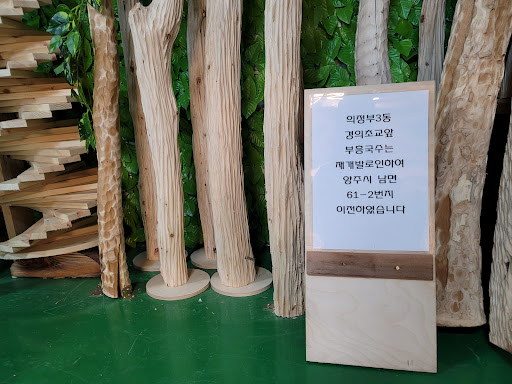 의정부3동
경의초교앞
부흥국수는
재개발로인하여
양주시 남면
61-2번지
이전하였습니다